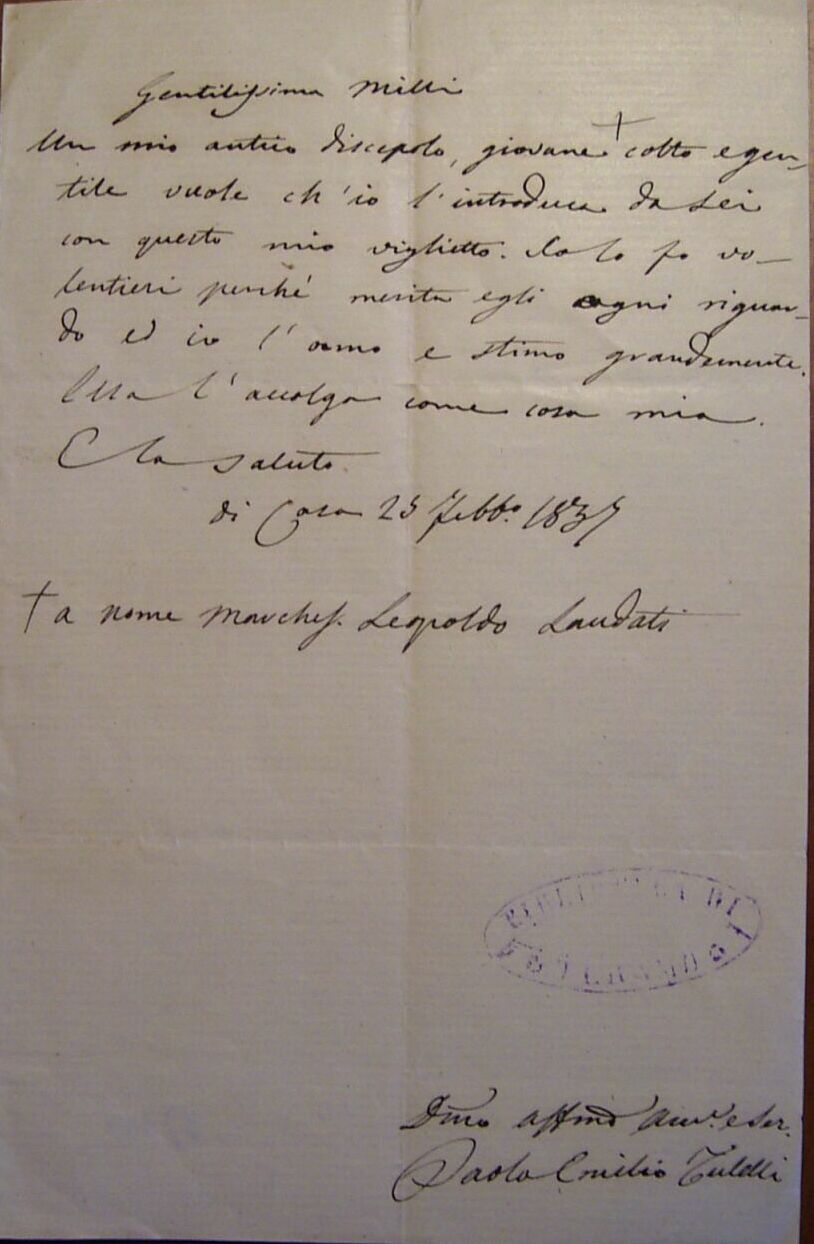 Gentilissima Milli
Un mio antico discepolo, giovane + colto e gen-
tile vuole ch'io l'introduca da Lei
con questo mio viglietto. Io lo fo vo-
lentieri perché merita egli ogni riguar-
do ed io l'amo e stimo grandemente.
Ella l'accolga come cosa mia.
E la saluto
di Casa 25 Febb.o 1857
+ a nome March. Leopoldo Laudati
BIBLIOTECA DI
TERAMO
Dmo affmo am.o e ser.
Paolo Emilio Tulelli